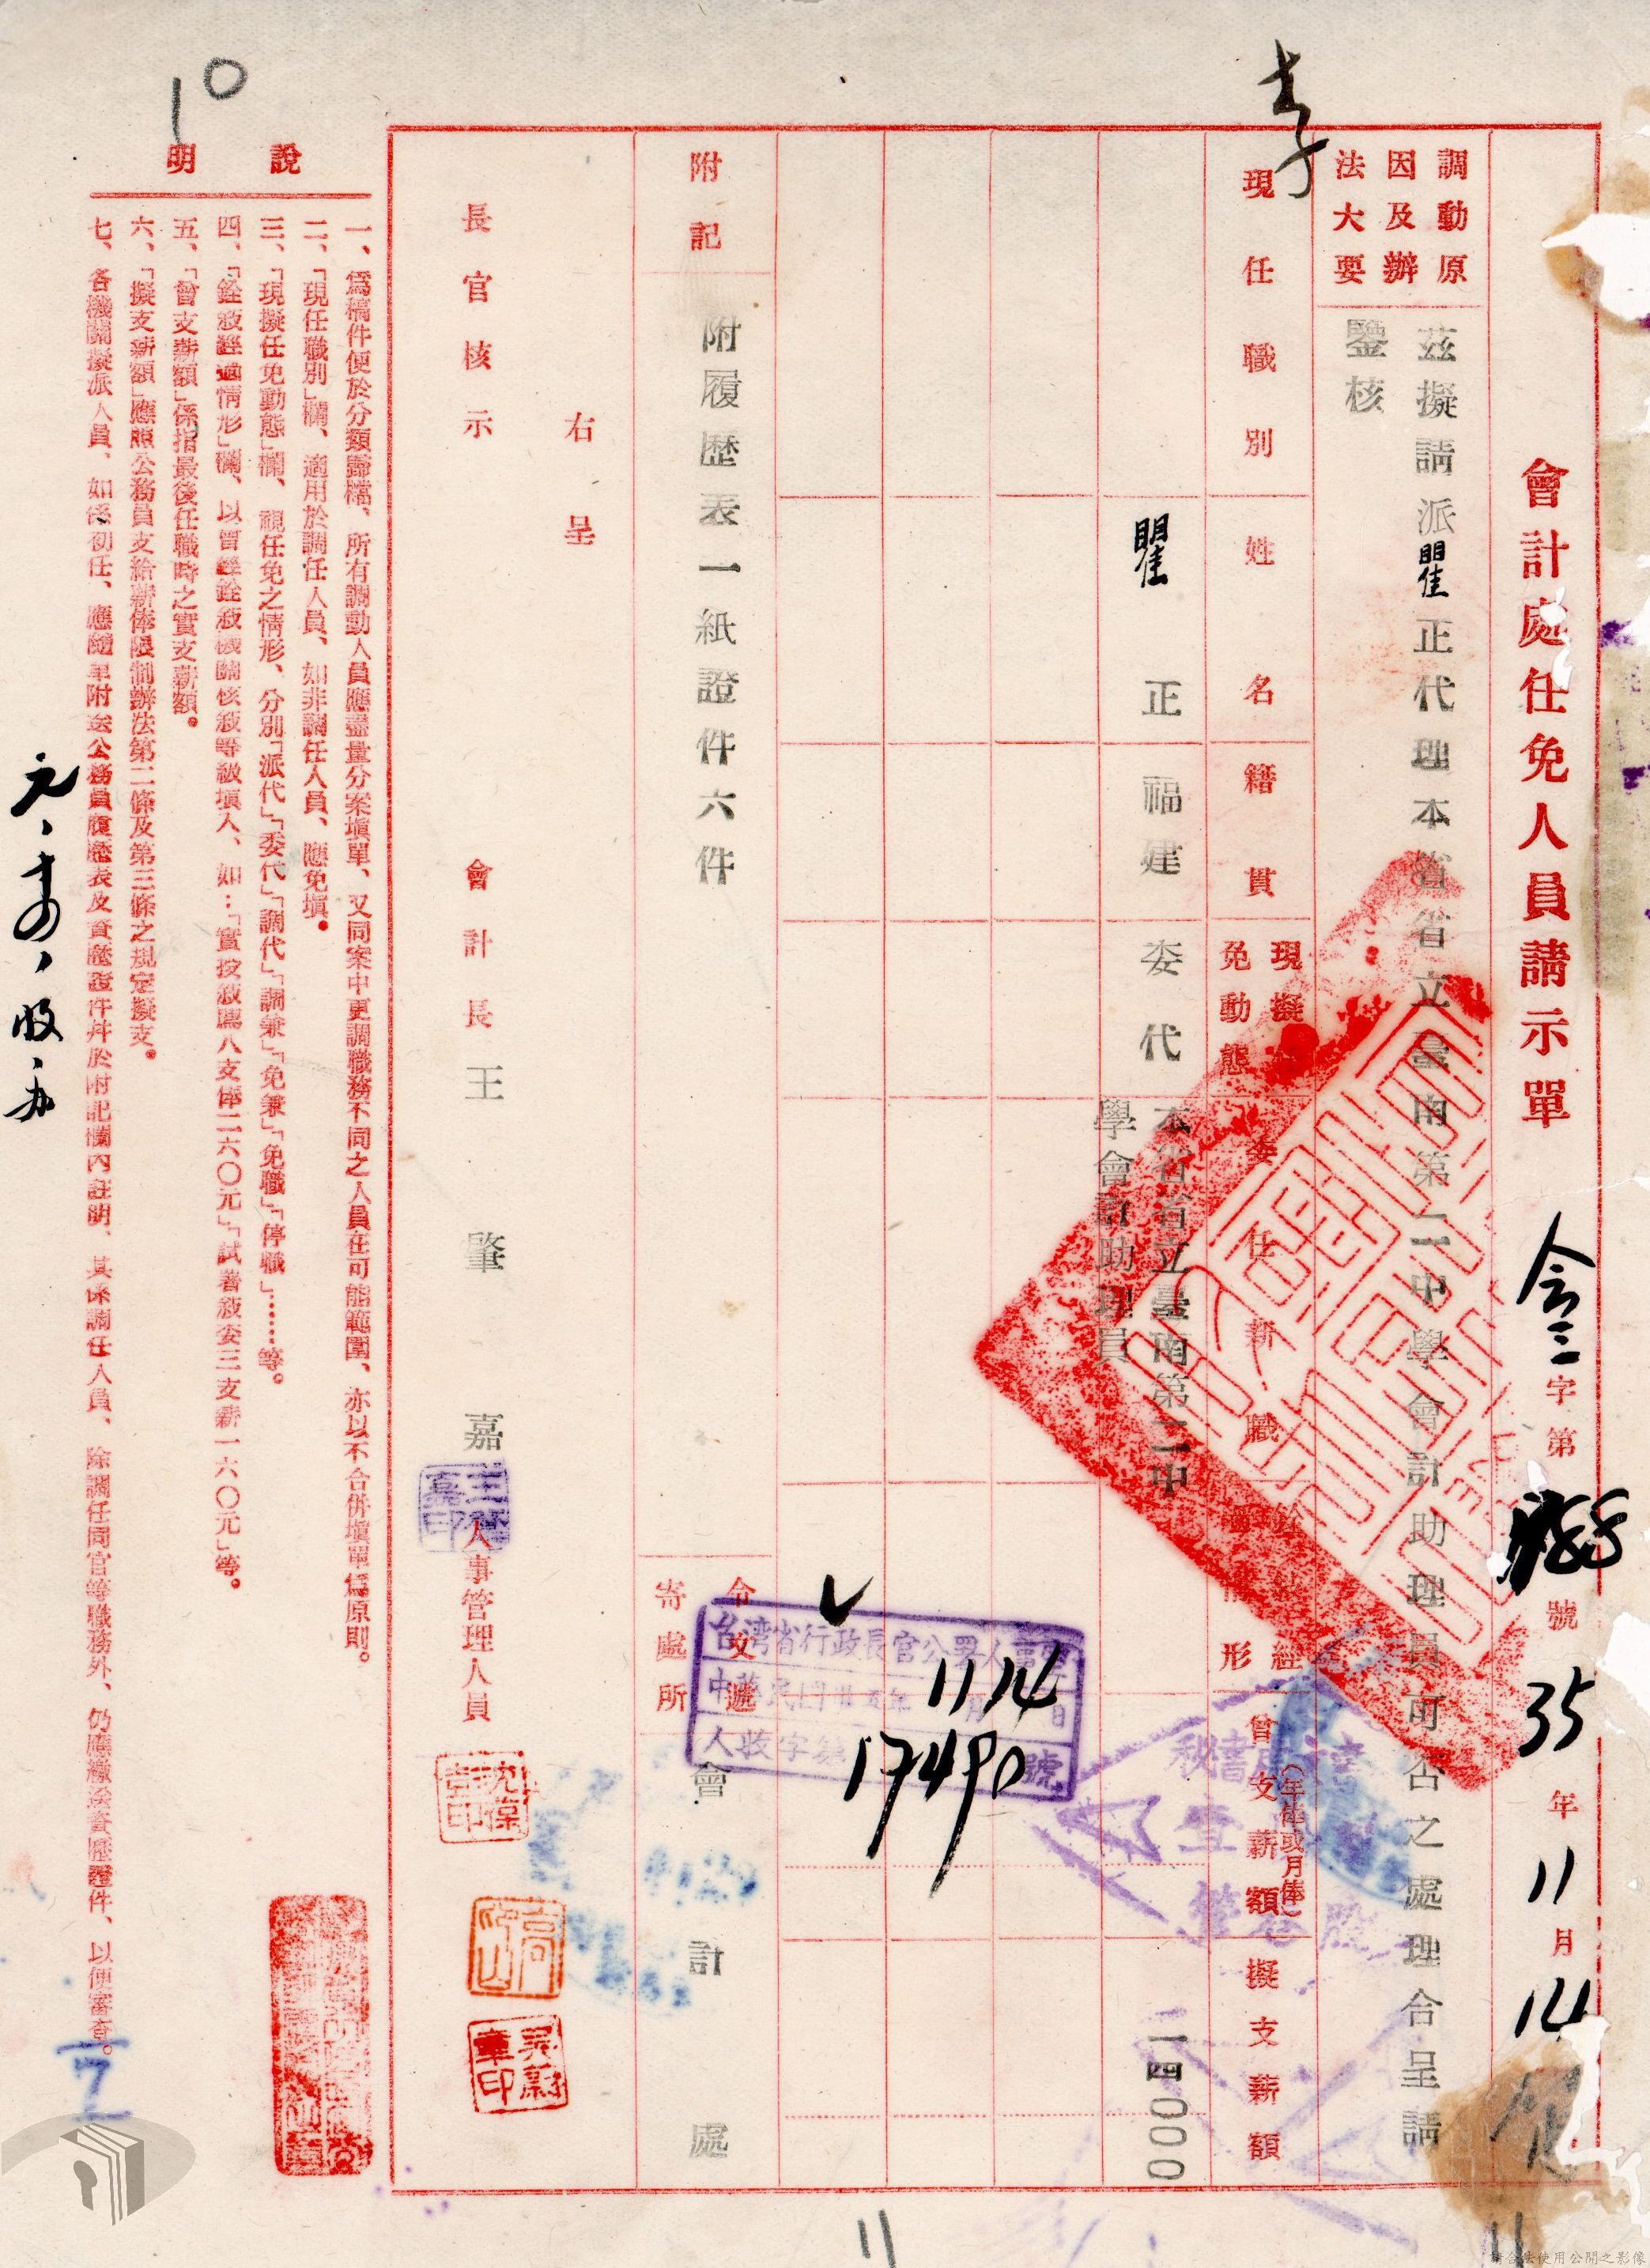 會計處任免人員請示單
令三字第 號 35年11月14
調動原因及辦法大要
茲擬請派瞿正代理本省省立臺南第二中學會計助理員可否之處理合呈請
鑒核
現任職別
姓名
籍貫
現擬任免動態
委任新職
銓敘經過情形
曾支薪額(年俸或月俸)
擬支薪額
瞿正
福建
委代
本省省立臺南第二中學會計助理員
一四〇〇〇〇
附記
附履歷表一紙證件六件
令文遞寄處所
會計處
台灣省行政長官公署人事室
中華民國卅五年11月14日
人收字第17490號
右呈
長官核示
會計長王肇嘉
人事管理人員
說明
一、爲稿件便於分類歸檔、所有調動人員應盡量分案塡單、又同案中更調職務不同之人員在可能範圍、亦以不合併塡單爲原則。
二、「現任職別」欄、適用於調任人員、如非調任人員、應免塡。
三、「現擬任免動態」欄、視任免之情形、分別「派代」「委代」「調代」「調兼」「免兼」「免職」「停職」……等。
四、「銓敘經過情形」欄、以曾經銓敘機關核敘等級塡入、如:「實授敘薦八支俸二六〇元」「試署敘委三支薪一六〇元」等。
五、「曾支薪額」係指最後任職時之實支薪額。
六、「擬支薪額」應照公務員支給薪俸限制辦法第二條及第三條之規定擬支。
七、各機關擬派人員、如係初任、應隨單附送公務員履歷表及資歷證件幷於附記欄內註明、其係調任人員、除調任同官等職務外、仍應檢送資歷證件、以便審查。
10
11